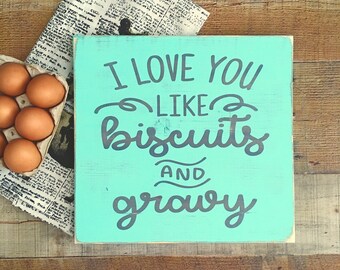 I LOVE YOU
LIKE
biscuits
AND
gravy